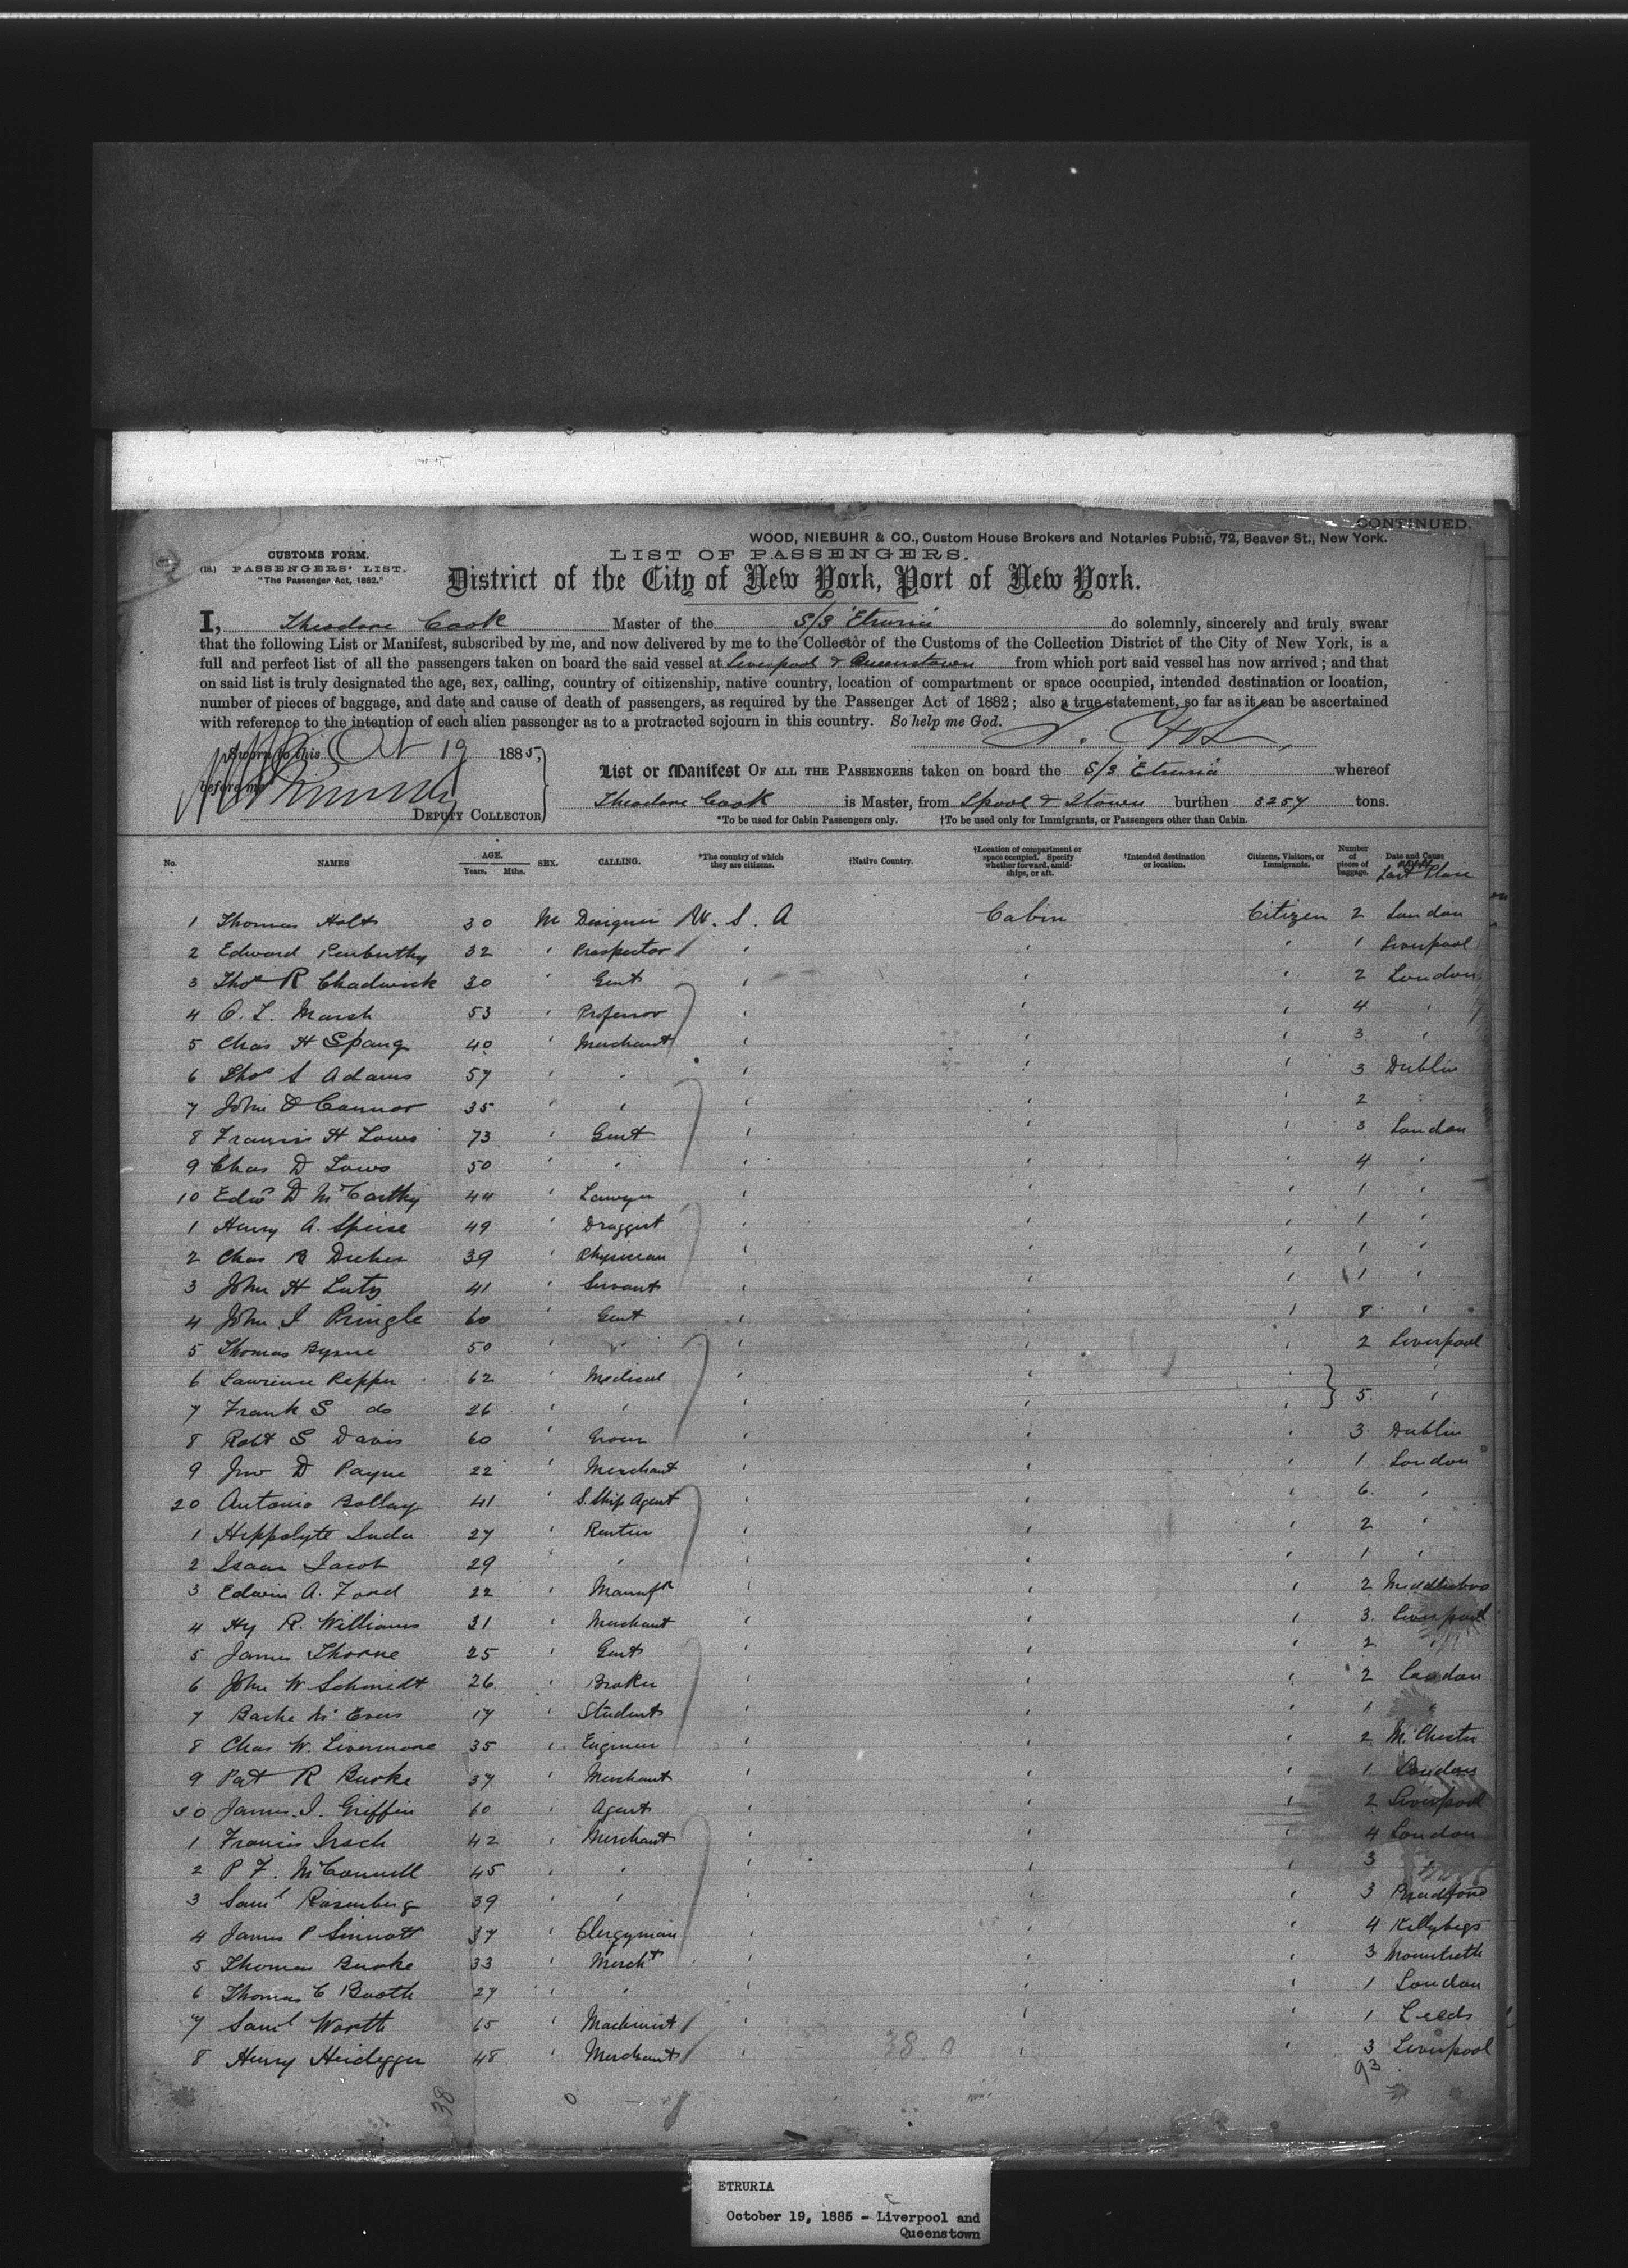 CONTINUED.
WOOD, NIEBUHR & CO., Custom House Brokers and Notaries Public, 72, Beaver St., New York.
CUSTOMS FORM.
LIST OF PASSENGERS.
(18.) PASSENGERS' LIST.
"The Passenger Act, 1882."
District of the City of New York, Port of New York.
I, Theodore Cook Master of the S/S Etruria do solemnly, sincerely and truly swear
that the following List or Manifest, subscribed by me, and now delivered by me to the Collector of the Customs of the Collection District of the City of New York, is a
full and perfect list of all the passengers taken on board the said vessel at Liverpool & Queenstown from which port said vessel has now arrived; and that
on said list is truly designated the age, sex, calling, country of citizenship, native country, location of compartment or space occupied, intended destination or location,
number of pieces of baggage, and date and cause of death of passengers, as required by the Passenger Act of 1882; also a true statement, so far as it can be ascertained
with reference to the intention of each alien passenger as to a protracted sojourn in this country. So help me God.
Sworn to this Oct 19 1885,
before me
DEPUTY COLLECTOR
List or Manifest OF ALL THE PASSENGERS taken on board the S/S Etruria whereof
Theodore Cook is Master, from Lpool & Qtown burthen 3257 tons.
*To be used for Cabin Passengers only. †To be used only for Immigrants, or Passengers other than Cabin.
No. NAMES AGE. Years. Mths. SEX. CALLING. *The country of which they are citizens. †Native Country. †Location of compartment or space occupied. Specify whether forward, amidships, or aft. †Intended destination or location. Citizens, Visitors, or Immigrants. Number of pieces of baggage. Date and Cause Last Place
1 Thomas Holt 30 M Designer U. S. A Cabin Citizen 2 London
2 Edward Penberthy 32 " Prospector " " " 1 Liverpool
3 Thos R Chadwick 30 " Gent " " " 2 London
4 O. L. Marsh 53 " Professor " " " 4 "
5 Chas H Spang 40 " Merchant " " " 3 "
6 Thos S Adams 57 " " " " " 3 Dublin
7 John O Connor 35 " " " " " 2 "
8 Francis H Lows 73 " Gent " " " 3 London
9 Chas D Lows 50 " " " " " 4 "
10 Edwd D McCarthy 44 " Lawyer " " " 1 "
1 Henry A. Speise 49 " Druggist " " " 1 "
2 Chas B Dreher 39 " Physician " " " 1 "
3 John H Lutz 41 " Servant " " " 1 "
4 John J Pringle 60 " Gent " " " 8 "
5 Thomas Byrne 50 " " " " " 2 Liverpool
6 Lawrence Reppu 62 " Medical " " " "
7 Frank S do 26 " " " " " 5 "
8 Robt S Davis 60 " Grocer " " " 3 Dublin
9 Jno D Payne 22 " Merchant " " " 1 London
20 Antonio 41 " S. Ship Agent " " " 6 "
1 Hippolyte 27 " Rentier " " " 2 "
2 Isaac Jacob 29 " " " " " 1 "
3 Edwin A. Ford 22 " Manufr " " " 2 Middlesboro
4 Hy R. Williams 31 " Merchant " " " 3 Liverpool
5 James Thorne 25 " Gent " " " 2 "
6 John W. Schmidt 26 " Broker " " " 2 London
7 Bache Mc Evers 17 " Student " " " 1 "
8 Chas W. Livermore 35 " Engineer " " " 2 M. Chester
9 Pat R Burke 37 " Merchant " " " 1 London
30 James J. Griffin 60 " Agent " " " 2 Liverpool
1 Francis Irsch 42 " Merchant " " " 4 London
2 P F. McConnell 45 " " " " " 3 "
3 Saml Rosenberg 39 " " " " " 3 Bradford
4 James P Sinnott 37 " Clergyman " " " 4 Killybegs
5 Thomas Burke 33 " Mercht " " " 3
6 Thomas C Booth 27 " " " " " 1 London
7 Saml Worth 65 " Machinist " " " 1 Leeds
8 Henry Heidegger 48 " Merchant " " " 3 Liverpool
38 0
93
38 0
ETRURIA
October 19, 1885 - Liverpool and
Queenstown